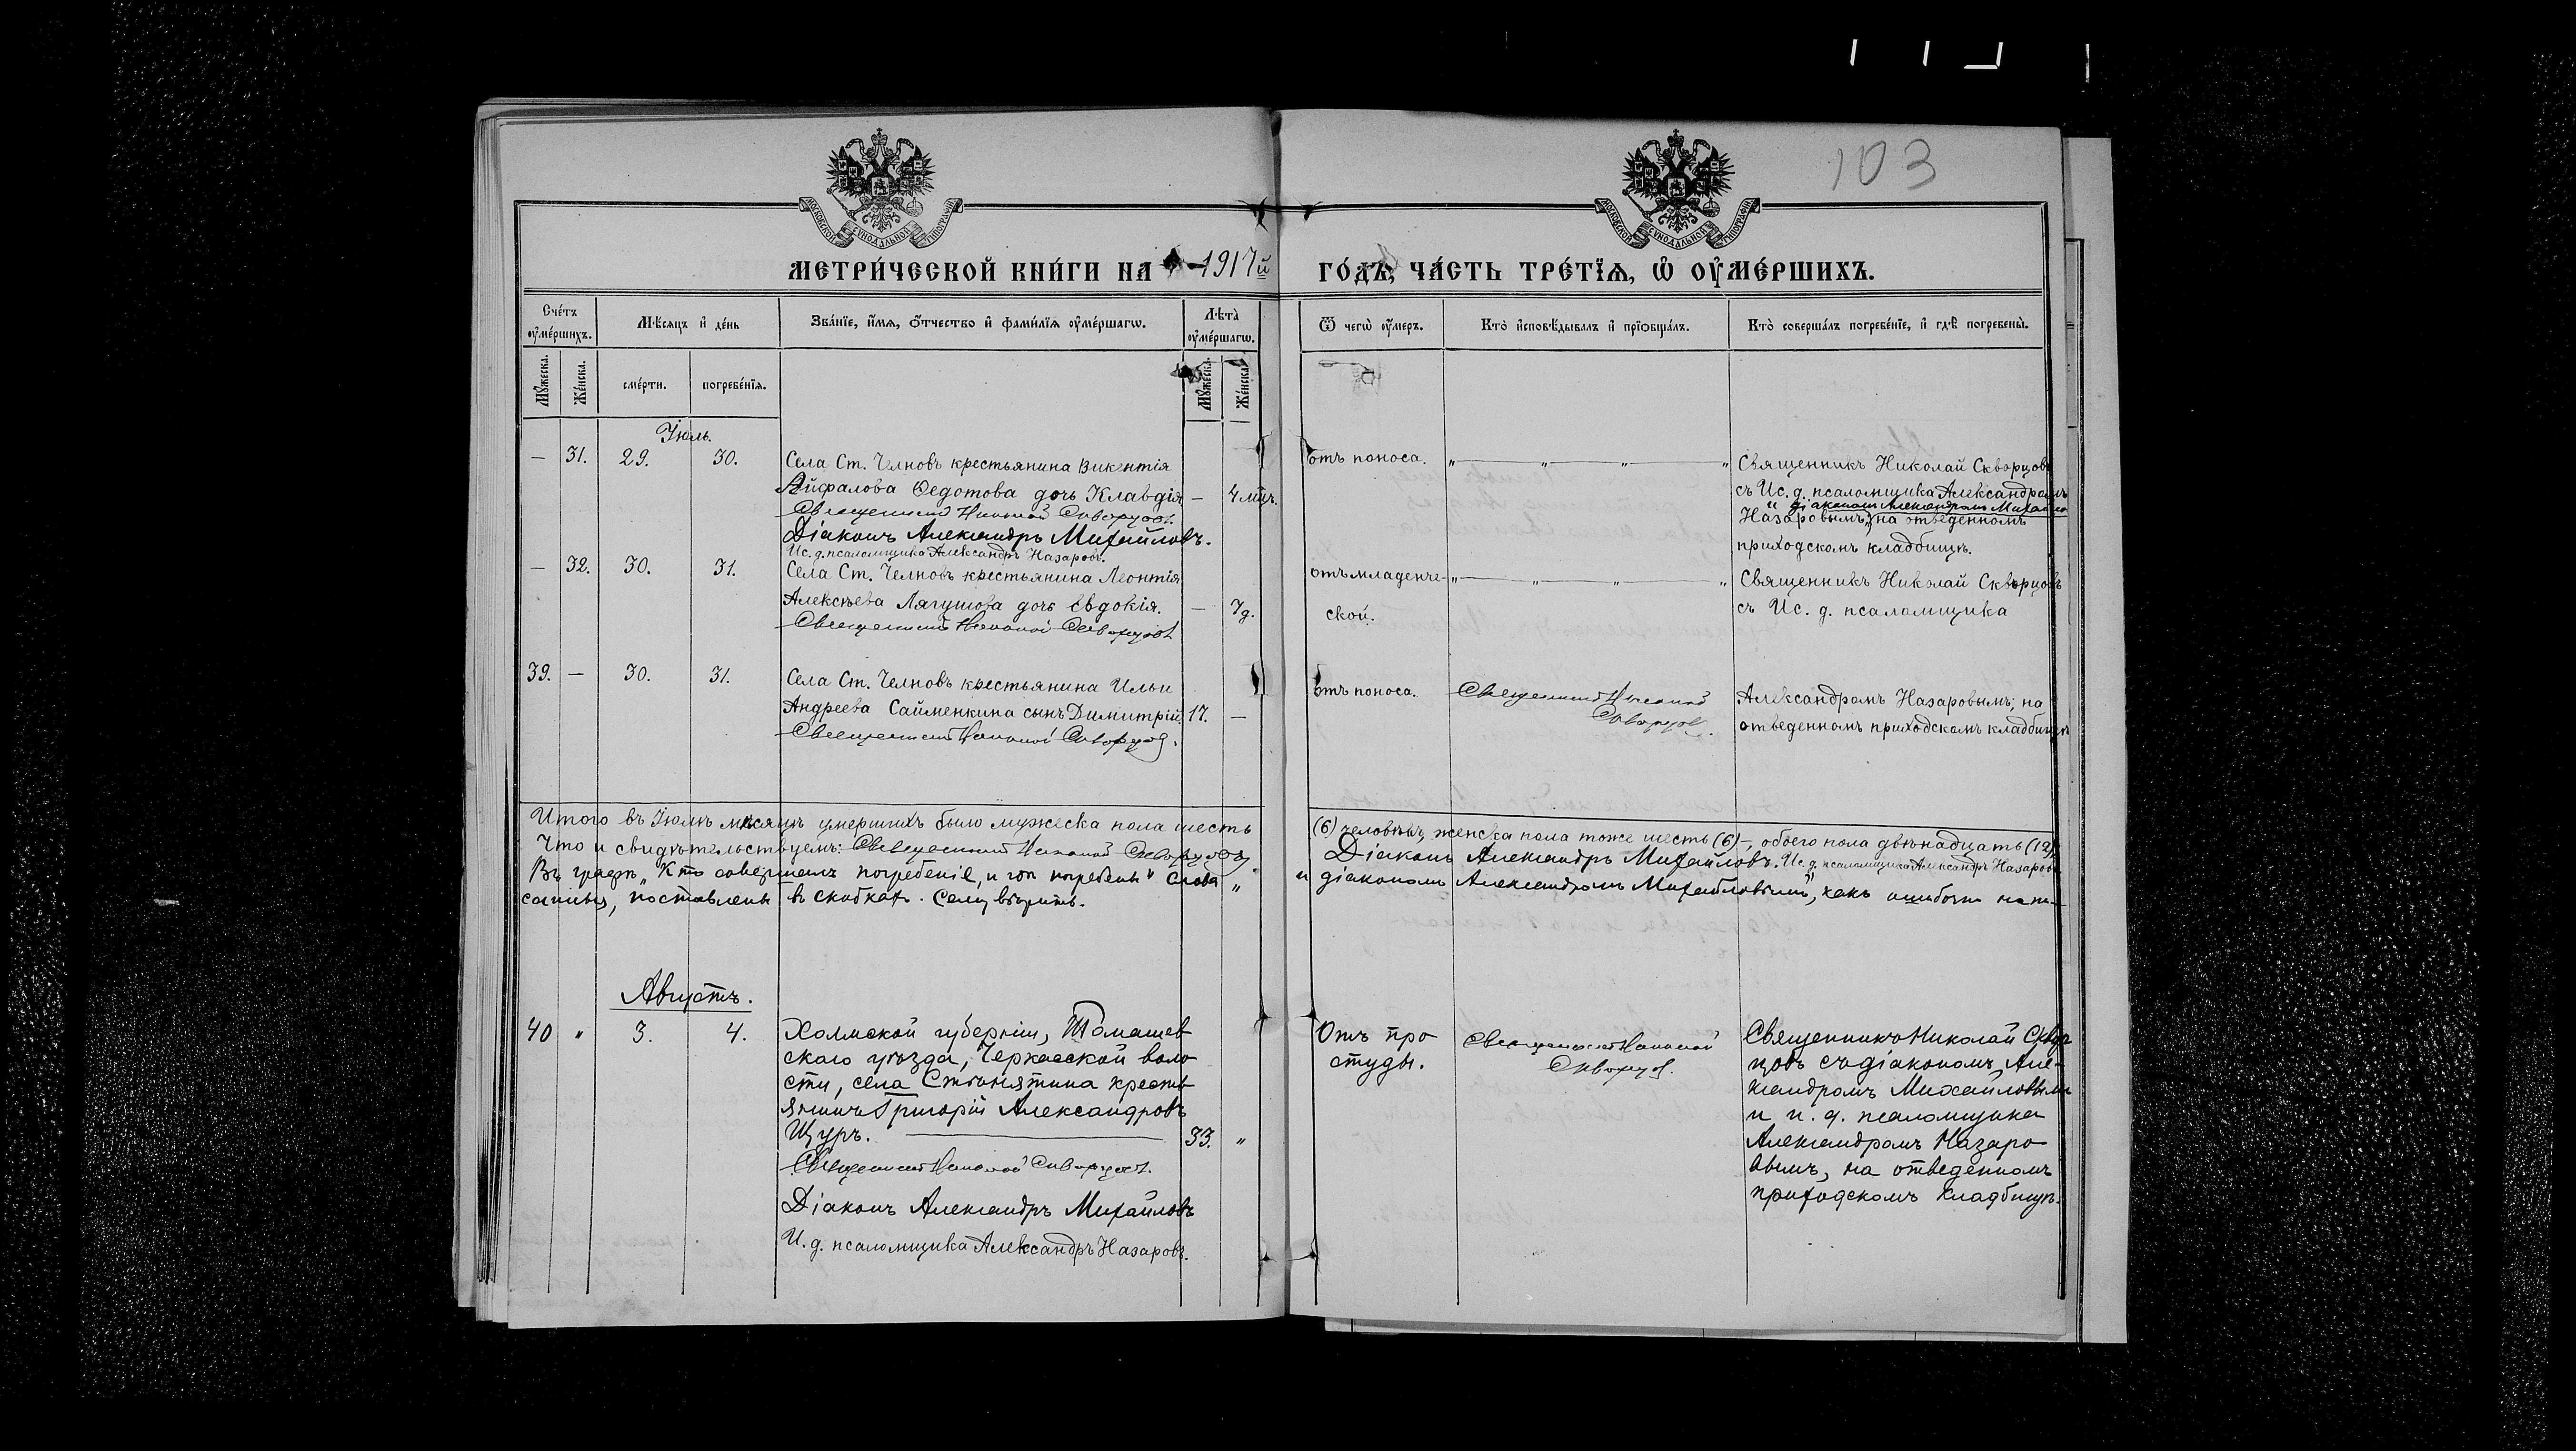 103
МОСКОВСКОЙ СѴНОДАЛЬНОЙ ТИПОГРАФІИ
МОСКОВСКОЙ СѴНОДАЛЬНОЙ ТИПОГРАФІИ
МЕТРИ́ЧЕСКОЙ КНИ́ГИ НА 1917й ГО́ДЪ, ЧА́СТЬ ТРЕ́ТЇЯ, Ѡ҆ ОУ҆МЕ́РШИХЪ.
Сче́тъ оу҆ме́ршихъ.
Мѣ́сяцъ и҆ де́нь
Зва́нїе, и҆́мя, ѻ҆́тчество и҆ фами́лїя оу҆ме́ршагѡ.
Лѣта̀ оу҆ме́ршагѡ.
Ѿ чегѡ̀ оу҆́меръ.
Кто̀ и҆сповѣ́дывалъ и҆ прїѻбща́лъ.
Кто̀ соверша́лъ погребе́нїе, и҆ гдѣ̀ погребены̀.
Мꙋ́жеска.
Же́нска.
сме́рти.
погребе́нїя.
Мꙋ́жеска.
Же́нска.
Іюль.
— 31. 29. 30.
Села Ст. Челновъ крестьянина Викентія
Айфалова Ѳедотова дочь Клавдія — 4 мѣс.
Священникъ Николай Скворцовъ.
Діаконъ Александръ Михайловъ.
Ис. д. псаломщика Александръ Назаровъ.
отъ поноса. „ — „ — „ — „
Священникъ Николай Скворцовъ
съ Ис. д. псаломщика Александромъ
и діакономъ Александромъ Михайло
Назаровымъ, на отведенномъ
приходскомъ кладбищѣ.
— 32. 30. 31.
Села Ст. Челновъ крестьянина Леонтія
Алексѣева Лягушова дочь Евдокія. — 7 д.
Священникъ Николай Скворцовъ
отъ младенче- „ — „ — „ — „
ской.
Священникъ Николай Скворцовъ
съ Ис. д. псаломщика
39. — 30. 31.
Села Ст. Челновъ крестьянина Ильи
Андреева Сайменкина сынъ Димитрій. 17. —
Священникъ Николай Скворцовъ.
отъ поноса.
Священникъ Николай
Скворцовъ.
Александромъ Назаровымъ; на
отведенномъ приходскомъ кладбищѣ
Итого въ Іюлѣ мѣсяцѣ умершихъ было мужеска пола шесть (6) человѣкъ, женска пола тоже шесть (6) —, обоего пола двѣнадцать (12).
Что и свидѣтельствуемъ: Священникъ Николай Скворцовъ. Діаконъ Александръ Михайловъ. Ис. д. псаломщика Александръ Назаровъ
Въ графѣ „Кто совершалъ погребеніе, и гдѣ погребены" слова „и діакономъ Александромъ Михайловымъ", какъ ошибочно напи-
санныя, поставлены въ скобкахъ. Сему вѣрить.
Августъ.
40 „ 3. 4.
Холмской губерніи, Томашев
скаго уѣзда, Черкасской воло
сти, села Стенятина кресть
янинъ Григорій Александровъ
Щуръ. — 33. „
Священникъ Николай Скворцовъ.
Діаконъ Александръ Михайловъ
И. д. псаломщика Александръ Назаровъ.
Отъ про
студы.
Священникъ Николай
Скворцовъ.
Священникъ Николай Сквор
цовъ съ діакономъ Але-
ксандромъ Михайловымъ
и и. д. псаломщика
Александромъ Назаро
вымъ, на отведенномъ
приходскомъ кладбищѣ.